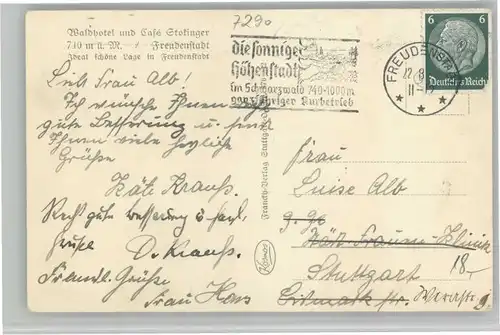 7290
Waldhotel und Café Stokinger
740 m ü. M. Freudenstadt
Ideal schöne Lage in Freudenstadt
die sonnige
Höhenstadt
im Schwarzwald 740-1000m
ganzjähriger Kurbetrieb
6 6
Deutsches Reich
FREUDENSTADT
22.8.
11-12
Lieb. Frau Alb!
Ich wünsche Ihnen
gute Besserung u. sende
Ihnen viele herzliche
Grüsse
Käte Krauss.
Recht gute Besserung u. herzl.
Grüsse
D. Krauss.
Freundl. Grüsse
Frau Haas
Franckh-Verlag Stuttgart
Frau
Luise Alb
z. Zt.
Städt. Frauen-Klinik
Stuttgart 18.
Bismarckstr. Werastr.